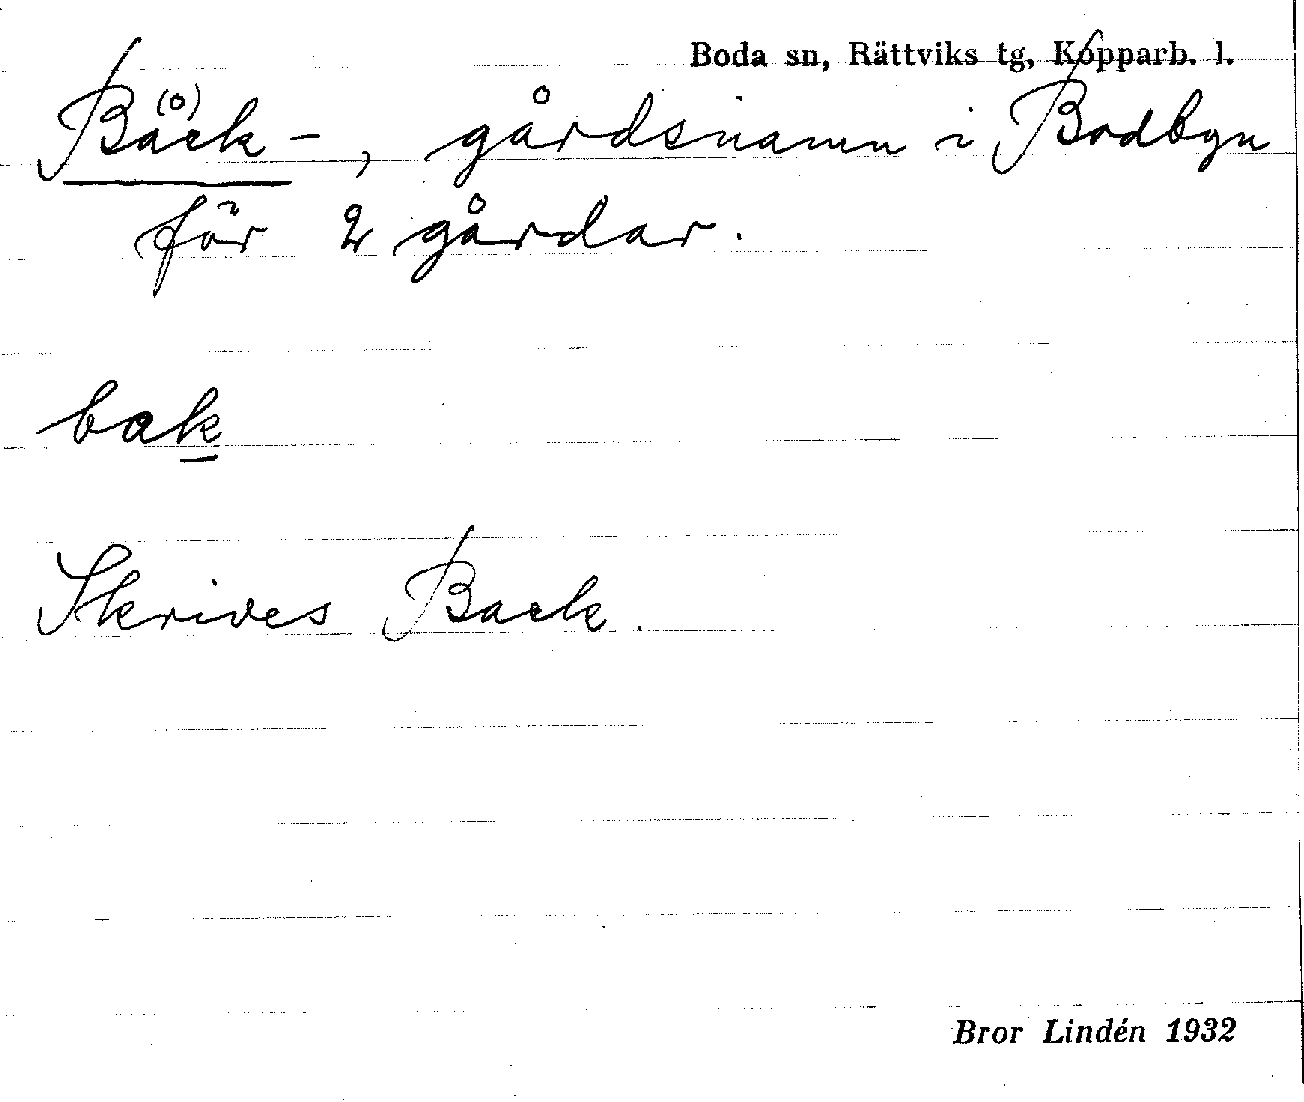 Boda sn, Rättviks tg, Kopparb. l.
Bå(o)ck-, gårdsnamn i Bodbyn
för 2 gårdar.
bak
Skrives Back.
Bror Lindén 1932